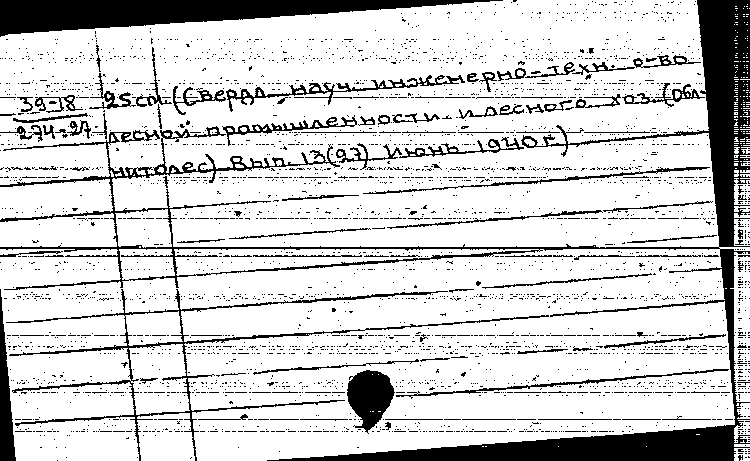 39-18 25 cm. (Свердл. науч. инженерно-техн. о-во
274:27 лесной промышленности и лесного хоз. (Обл-
нитолес) Вып. 13(27) Июнь 1940 г.)